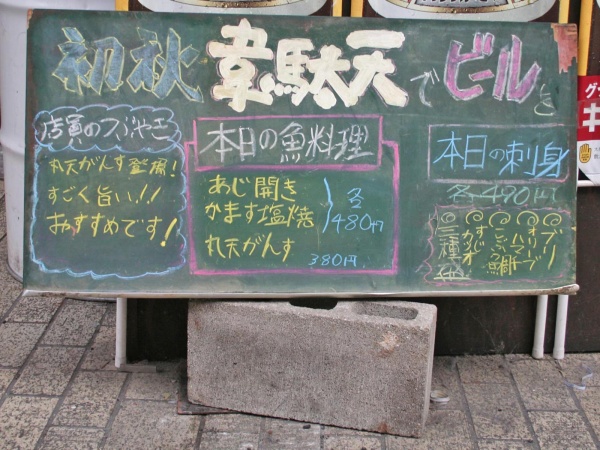 初秋 韋駄天でビールを
店員のつぶやき
丸天がんす登場!
すごく旨い!!
おすすめです!
本日の魚料理
あじ開き
かます塩焼
各480円
丸天がんす 380円
本日の刺身
各490円
◎ブリ
◎オリーブハマチ
◎こしょう鯛
◎すじガツオ
◎三種盛